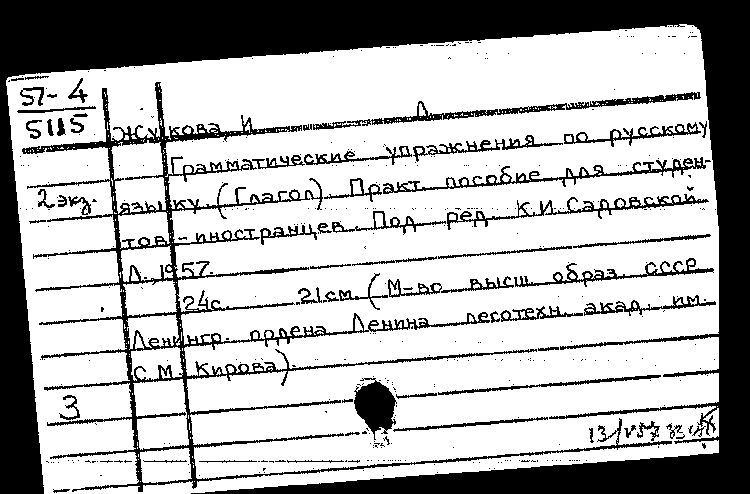 57-4
5115
Жукова, И Л
Грамматические упражнения по русскому
2 экз.
языку. (Глагол). Практ. пособие для студен-
тов-иностранцев. Под ред. К.И. Садовской.
Л., 1957.
24с. 21см. (М-во высш образ. СССР
Ленингр. ордена Ленина лесотехн. акад. им.
С.М. Кирова).
3